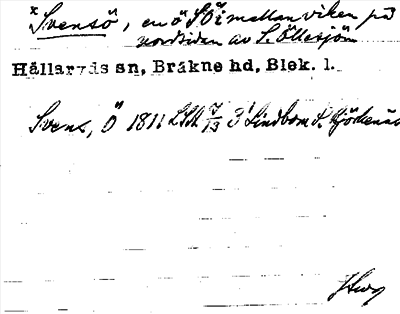 x Svensö, en ö SÖ i mellan viken på
nordsidan av S. Öllesjön
Hällaryds sn, Bräkne hd, Blek. l.
Svens, Ö 1811 LSA 7/13 3' Lindbom S.